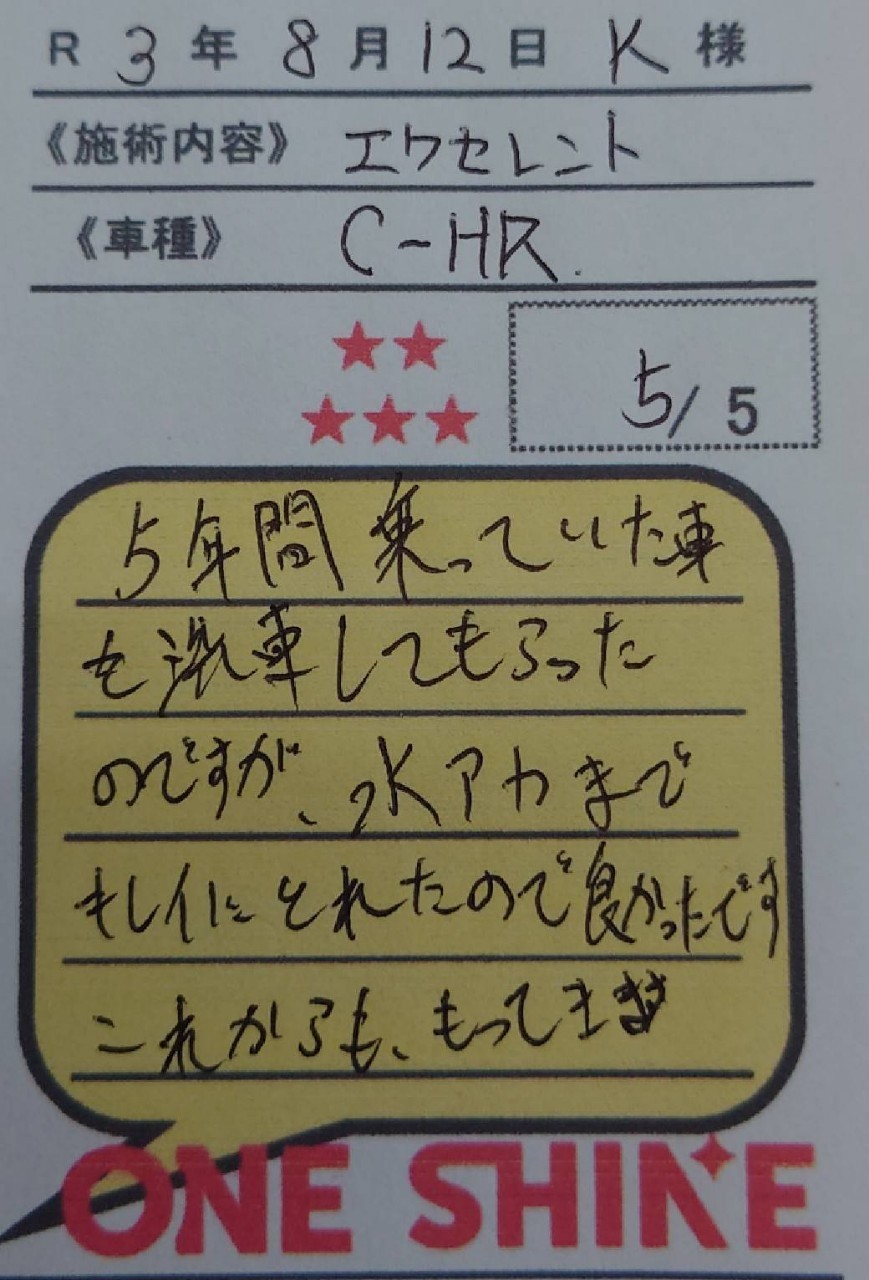 R 3年 8月 12日 K 様
《施術内容》 エクセレント
《車種》 C-HR.
5/5
5年間乗っていた車
を洗車してもらった
のですが、水アカまで
キレイにとれたので良かったです
これからも、もってき
ONE SHINE